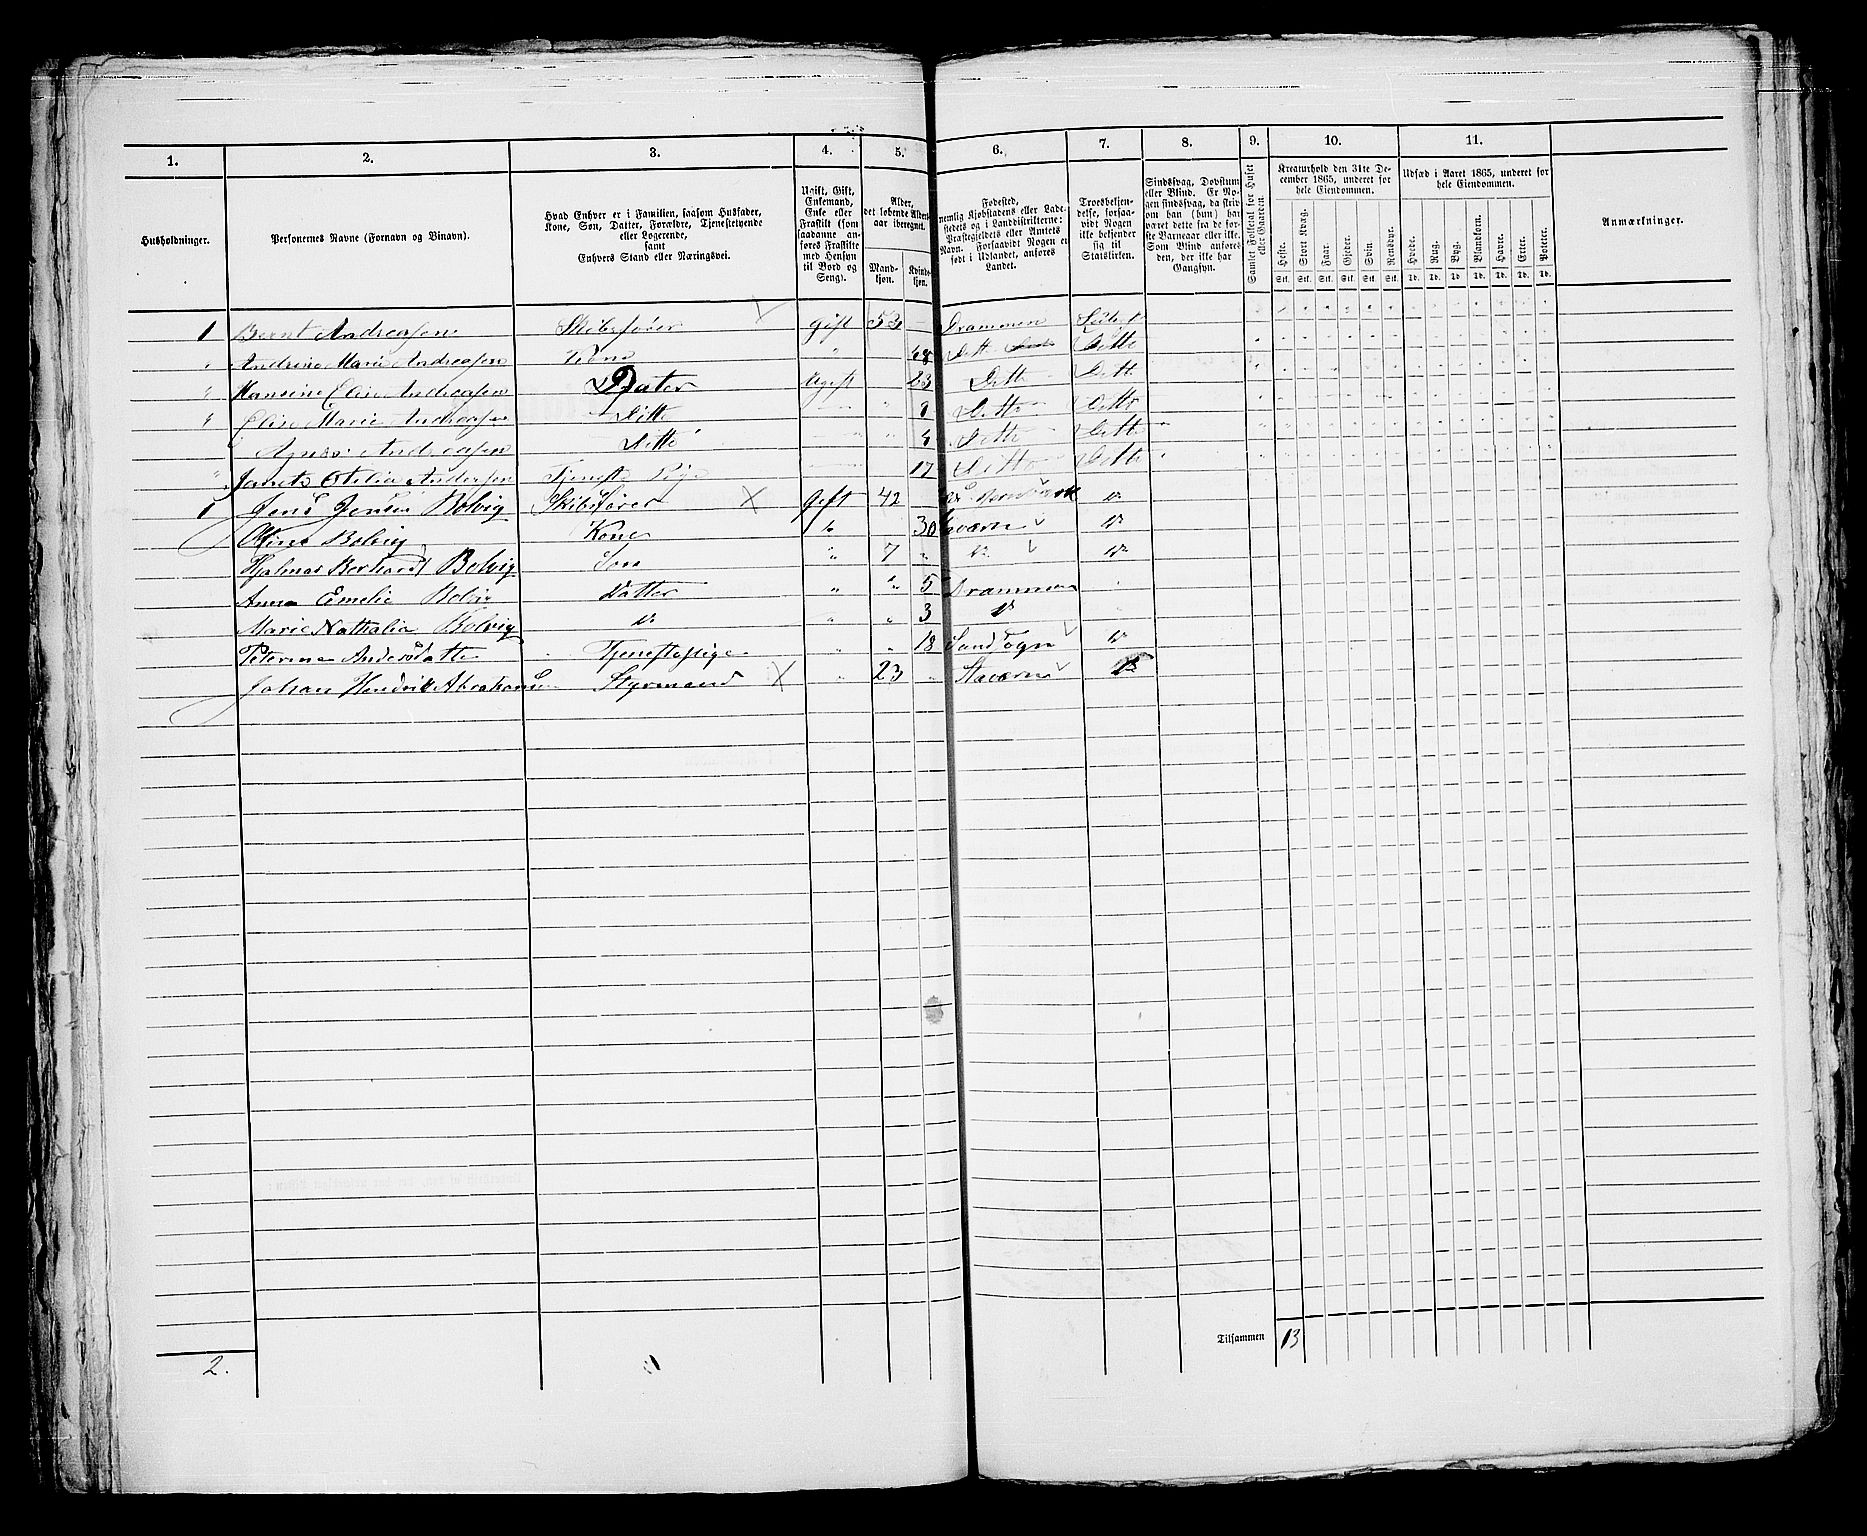 1. 2. 3. 4. 5. 6. 7. 8. 9. 10. 11.
Husholdninger.
Personernes Navne (Fornavn og Binavn).
Hvad Enhver er i Familien, saasom Husfader,
Kone, Søn, Datter, Forældre, Tjenestetyende
eller Logerende,
samt
Enhvers Stand eller Næringsvei.
Ugift, Gift,
Enkemand,
Enke eller
Fraskilt (som
saadanne an-
føres Fraskilte
med Hensyn
til Bord og
Seng).
Alder,
det løbende Alders-
aar iberegnet.
Mand-
kjøn.
Kvinde-
kjøn.
Fødested,
nemlig Kjøbstadens eller Lade-
stedets og i Landdistrikterne:
Præstegjeldets eller Amtets
Navn. Forsaavidt Nogen er
født i Udlandet, anføres
Landet.
Troesbekjen-
delse, forsaa-
vidt Nogen
ikke bekjender
sig til
Statskirken.
Sindssvag, Døvstum
eller Blind. Er No-
gen sindssvag, da skriv
om han (hun) har
været dette fra de før-
ste Barneaar eller ikke.
Som Blind anføres
den, der ikke har
Gangsyn.
Samlet Folketal for Huset
eller Gaarden.
Kreaturhold den 31te De-
cember 1865, underet for
hele Eiendommen.
Heste. Stort Kvæg. Faar. Gjeder. Svin. Rensdyr.
Stk. Stk. Stk. Stk. Stk. Stk.
Udsæd i Aaret 1865, underet for
hele Eiendommen.
Hvede. Rug. Byg. Blandkorn. Havre. Erter. Poteter.
Td. Td. Td. Td. Td. Td. Td.
Anmærkninger.
1 Bernt Andreasen Skibsfører gift 53 Drammen
" Andrine Marie Andreasen Kone " 48 Ditto Ditto
" Hansine Elise Andreasen Dater Ugift 23 Ditto Ditto
" Elise Marie Andreasen Ditto " 8 Ditto Ditto
Andreasen Ditto " " Ditto Ditto
" Otilia Andersen Tjeneste Pige 17 Ditto Ditto
1 Jens Jensen Bolvig Skibsfører X Gift 42 do
Oline Bolvig Kone " 30 do
Hjalmar Berhard Bolvig Søn " 7 " do do
Anna Emelie Bolvig Datter " " 5 Drammen "
Marie Nathalia Bolvig do " " 3 do "
Peterine Andersdatter Tjenestepige " " 18 do
Johan Hendrik Abrahamsen Styrmand X " 23 " Staværn do
Tilsammen 13
2.